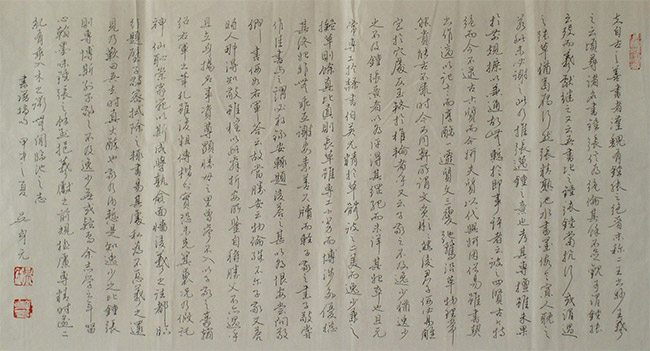 夫自古之善書者漢魏有鍾張之絕晉末稱二王之妙王羲
之云頃尋諸名書鍾張信為絕倫其餘不足觀可謂鍾張
云沒而羲獻繼之又云吾書比之鍾張鍾當抗行或謂過
之張草猶當雁行然張精熟池水盡墨假令寡人耽之
若此未必謝之此乃推張邁鍾之意也考其專擅雖未果
於前規摭以兼通故無慚於即事評者云彼之四賢古今特
絕而今不逮古古質而今妍夫質以代興妍因俗易雖書契
之作適以記言而淳醨一遷質文三變馳騖沿革物理常
然貴能古不乖時今不同弊所謂文質彬彬然後君子何必易雕
宮於穴處反玉輅於椎輪者乎又云子敬之不及逸少猶逸少
之不及鍾張意者以為評得其綱紀而未詳其始卒也且元
常專工於隸書伯英尤精於草體彼之二美而逸少兼之
擬草則餘真比真則長草雖專工小劣而博涉多優總
其終始匪無乖互謝安素善尺牘而輕子敬之書子敬嘗
作佳書與之謂必存錄安輒題後答之甚以為恨安嘗問敬
卿書何如右軍答云故當勝安云物論殊不爾子敬又答
時人那得知敬雖權以此辭折安所鑒自稱勝父不亦過乎
且立身揚名事資尊顯勝母之里曾參不入以子敬之豪翰
紹右軍之筆札雖復粗傳楷則實恐未克箕裘況乃假託
神仙恥崇家範以斯成學孰愈面牆後羲之往都臨
行題壁子敬密拭除之輒書易其處私為不惡羲之還
見乃歎曰吾去時真大醉也敬乃內慚是知逸少之比鍾張
則專博斯別子敬之不及逸少無或疑焉余志學之年留
心翰墨味鍾張之餘烈挹羲獻之前規極慮專精時逾二
紀有乖入木之術無間臨池之志
書譜 甲午之夏